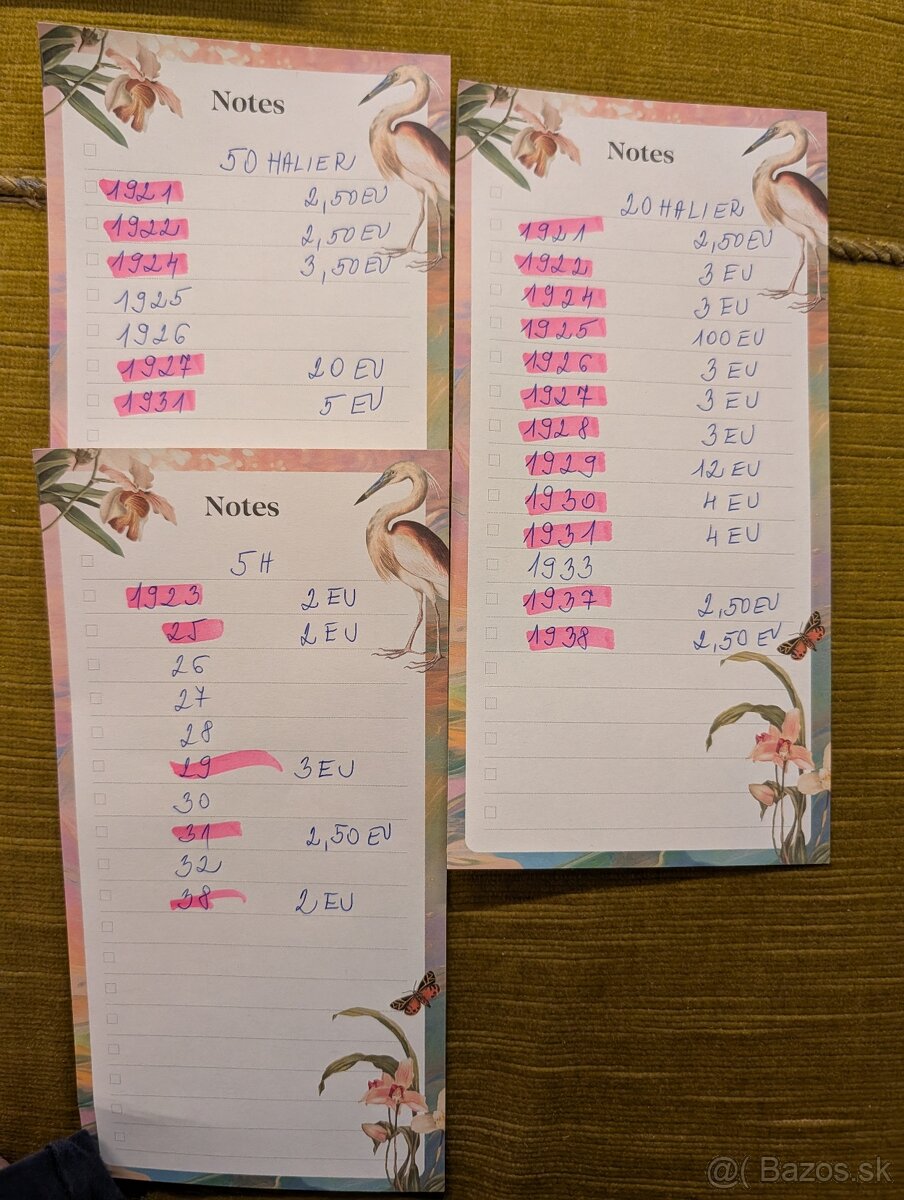 Notes
50 HALIER
1921 2,50EU
1922 2,50EU
1924 3,50EU
1925
1926
1927 20 EU
1931 5 EU
Notes
5 H
1923 2 EU
25 2 EU
26
27
28
29 3 EU
30
31 2,50 EU
32
38 2 EU
Notes
20 HALIER
1921 2,50EU
1922 3 EU
1924 3 EU
1925 100 EU
1926 3 EU
1927 3 EU
1928 3 EU
1929 12 EU
1930 4 EU
1931 4 EU
1933
1937 2,50EU
1938 2,50 EU
@( Bazos.sk